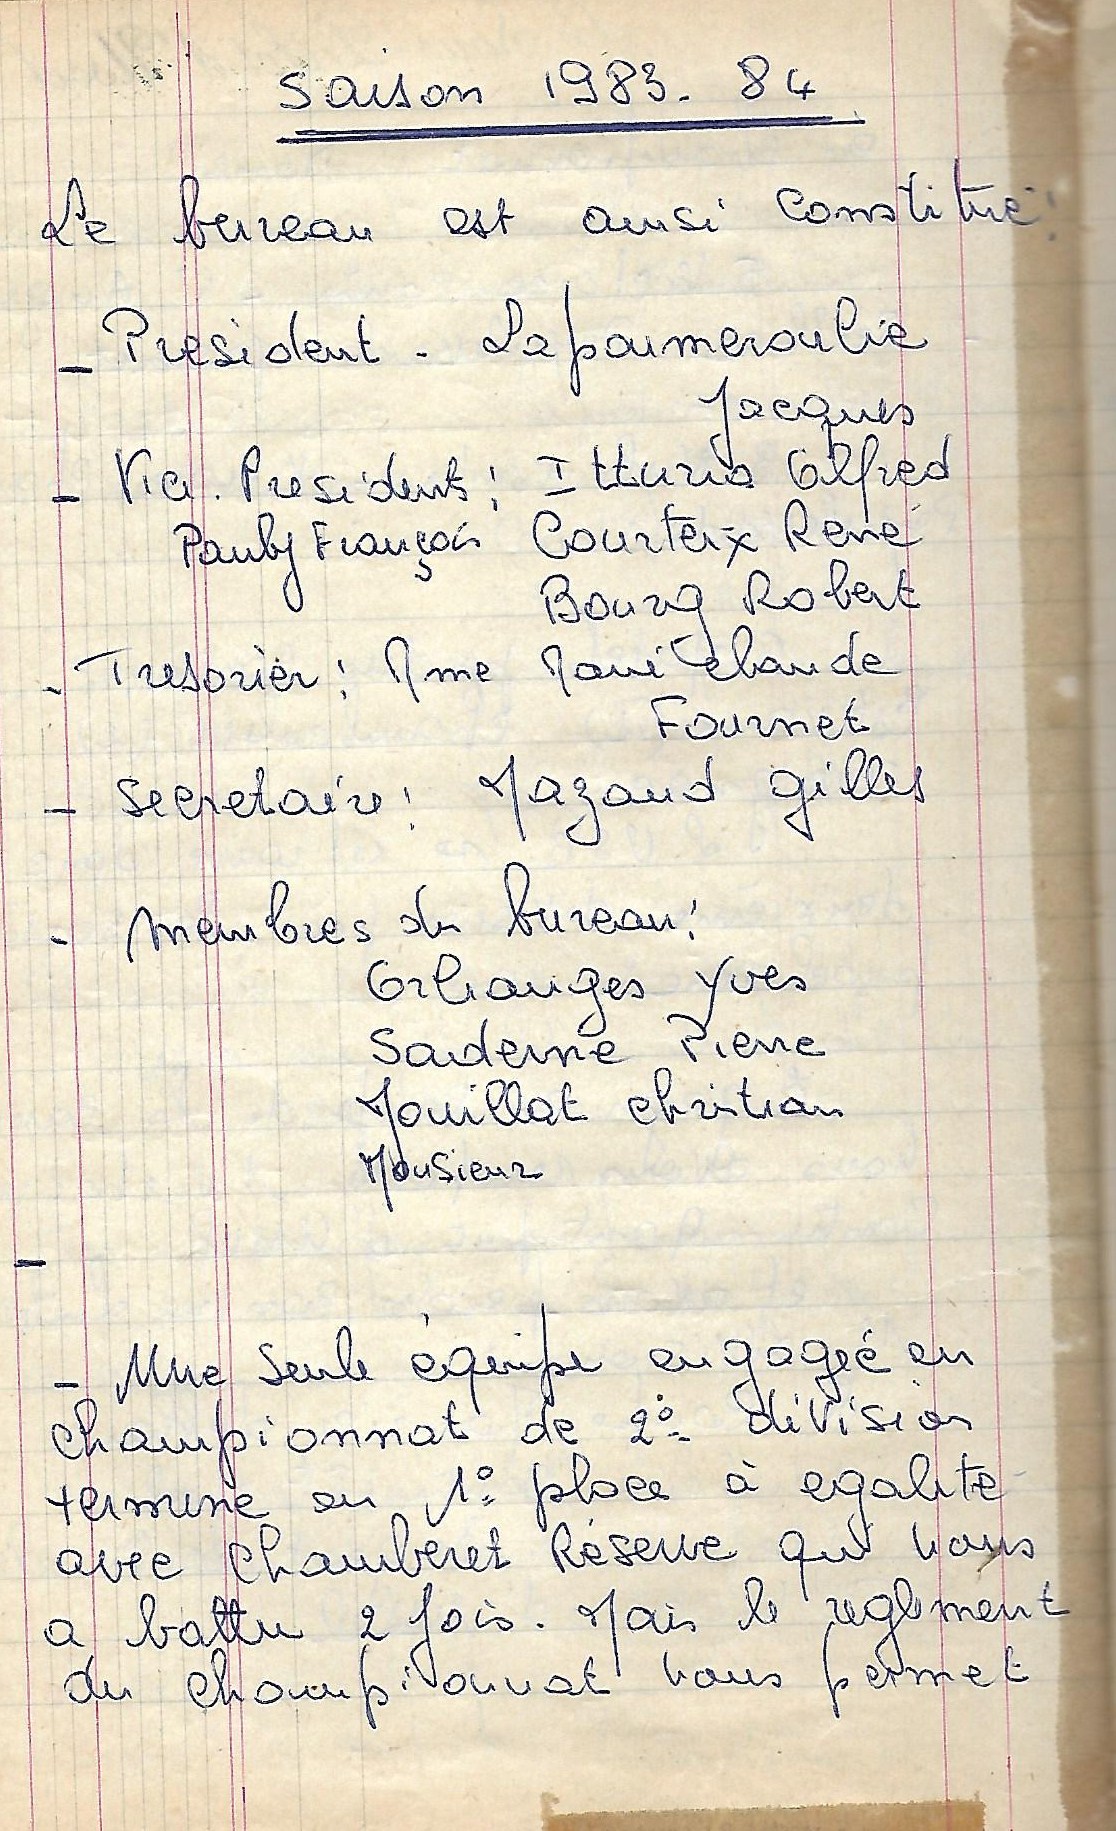 Saison 1983. 84
Le bureau est ainsi constitué :
- President - Lapoumeroulie
Jacques
- Vice. Presidents : Itturia Alfred
Pauly François Courteix René
Bourg Robert
- Tresorier : Mme Marie Claude
Fournet
- Secretaire : Mazaud Gilles
- Membres du bureau :
Orliangés Yves
Pierre
Mouillat Christian
Monsieur
-
- Une seule équipe engagée en
championnat de 2° division
termine en 1° place à egalité
avec Chamberet Réserve qui nous
a battu 2 fois. Mais le reglement
du championnat nous permet